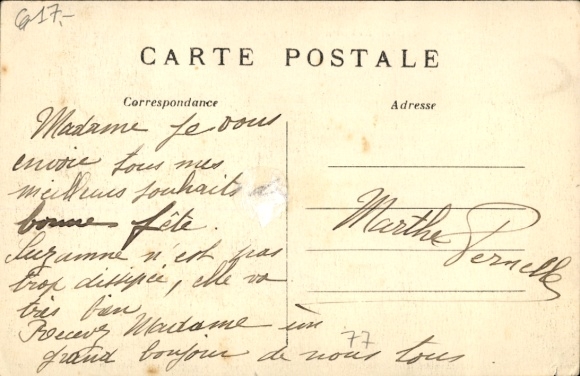 617,-
CARTE POSTALE
Correspondance
Adresse
Madame Je vous
envoie tous mes
meilleurs souhaits de
bonne fête.
Suzanne n'est pas
trop dissipée, elle va
très bien
Recevez Madame un
grand bonjour de nous tous
77
Marthe
Pernelle